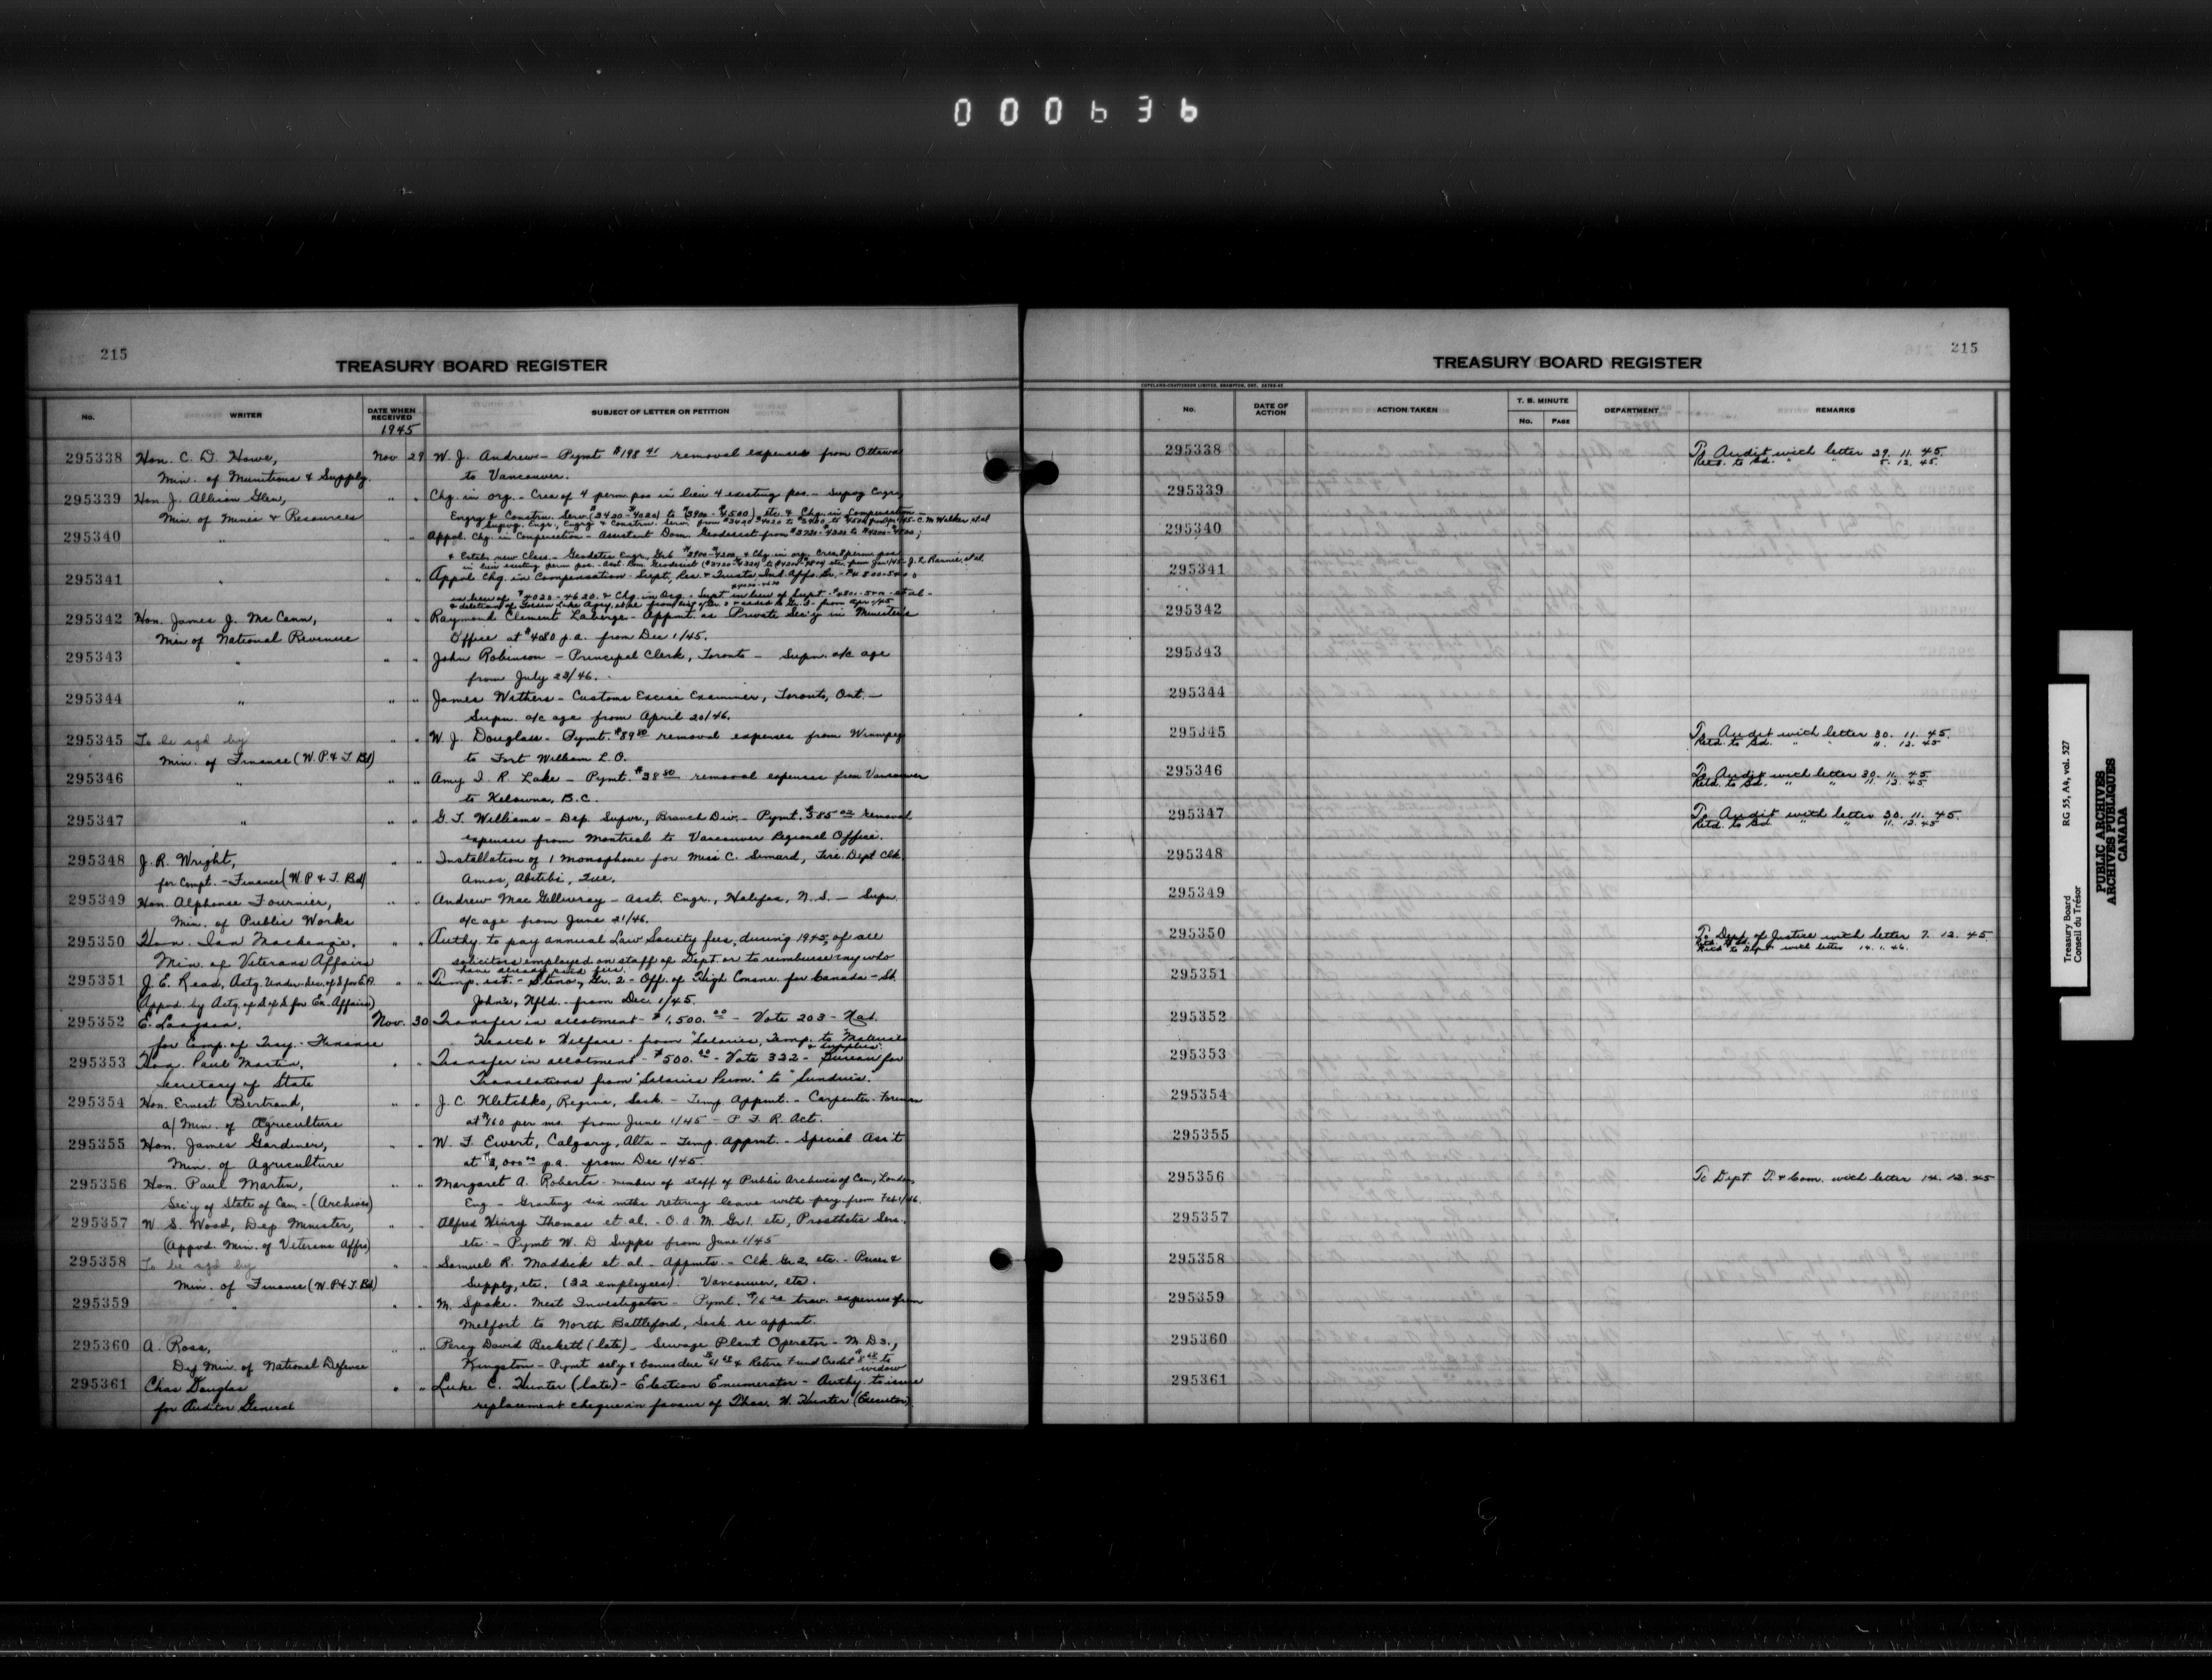 000636
215
TREASURY BOARD REGISTER
No.
WRITER
DATE WHEN RECEIVED
1945
SUBJECT OF LETTER OR PETITION
295338 Hon. C. D. Howe, Nov 29 W. J. Andrews - Pymt $198 41 removal expenses from Ottawa
Min. of Munitions & Supply. to Vancouver.
295339 Hon J. Allison Glen, " " Chg. in org. - Crea of 4 perm pos in lieu 4 existing pos. - Supvg Engrs,
Min. of Mines & Resources Engrg & Constrn. Serv. ($3420-$4020) to ($3900-$4500) etc. & Chg. in Compensation -
Supvg. Engr., Engrg & Constrn. Serv. from C. M. Walker et al
295340 " " " Appvl. Chg. in Compensation - Assistant Dom. Geodesist from $3720-$4320 to $4200-$4800;
& Estab. new Class. - Geodetic Engr., Gr 6 $3900-$4200, & Chg. in org. Crea perm pos
in lieu existing perm pos. - Asst. Dom. Geodesist ($3720-$4320) to $4200-$4800 etc. from Jan 1/45 - J. L. Rannie, et al.
295341 " " " Appvl Chg. in Compensation - Supt., Res. & Trusts, Ind. Affs. Br.,
in lieu of $4020-4620. & Chg. in Org. - Supt in lieu of Supt. et al -
from Apr 1/45
295342 Hon. James J. McCann, " " Raymond Clement Laberge - Appmt. as Private Sec'y in Minister's
Min of National Revenue Office at $4080 p.a. from Dec 1/45.
295343 " " " John Robinson - Principal Clerk, Toronto - Supn. a/c age
from July 23/46.
295344 " " " James Withers - Customs Excise Examiner, Toronto, Ont. -
Supn. a/c age from April 20/46.
295345 To be sgd by " " W. J. Douglass - Pymt. $89 80 removal expenses from Winnipeg
Min. of Finance (W. P. & T. Bd) to Fort William L. O.
295346 " " " Amy I. R. Lake - Pymt. $38 80 removal expenses from Vancouver
to Kelowna, B.C.
295347 " " " G. T. Williams - Dep. Supvr., Branch Div. - Pymt. $585 removal
expenses from Montreal to Vancouver Regional Office.
295348 J. R. Wright, " " Installation of 1 Monophone for Miss C. Simard, Clk.
for Compt. - Finance (W. P & T. Bd) Amos, Abitibi, Que.
295349 Hon. Alphonse Fournier, " " Andrew MacGillivray - Asst. Engr., Halifax, N. S. - Supn.
Min. of Public Works a/c age from June 21/46.
295350 Hon. Ian Mackenzie, " " Authy. to pay annual Law Society fees, during 1945, of all
Min. of Veterans Affairs solicitors employed on staff of Dept. or to reimburse any who
have already paid fees.
295351 J. E. Read, Actg. Under-Sec. of S for E.A. " " Temp. est. - Steno, Gr. 2 - Off. of High Comsnr. for Canada - St.
(Appvd. by Actg. S of S for Ex. Affairs) John's, Nfld. from Dec. 1/45.
295352 Nov. 30 Transfer in allotment - $1,500.00 - Vote 203 - Nat.
for Comp. of Trsy. - Finance Health & Welfare - from "Salaries, Temp. to "Materials
& Supplies.
295353 Hon. Paul Martin, " " Transfer in allotment - $500.00 - Vote 322 - Bureau for
Secretary of State Translations from "Salaries Perm." to "Sundries."
295354 Hon. Ernest Bertrand, " " J. C. Kletchko, Regina, Sask. - Temp. Appmt. - Carpenter-Foreman
a/ Min. of Agriculture at $160 per mo. from June 1/45 - P. F. R. Act.
295355 Hon. James Gardiner, " " W. F. Ewert, Calgary, Alta - Temp. Appmt. - Special Ass't
Min. of Agriculture at p.a. from Dec 1/45.
295356 Hon. Paul Martin, " " Margaret A. Roberts - member of staff of Public Archives of Can, London
Sec'y of State of Can - (Archives) Eng - Granting six mths retiring leave with pay from Feb 1/46.
295357 W. S. Wood, Dep. Minister, " " Alfred Henry Thomas et al. - O. A. M. Gr 1. etc, Prosthetic Serv.
(Appvd. Min. of Veterans Affrs) etc - Pymt W. D Supps from June 1/45
295358 To be sgd by " " Samuel R. Maddick et al. - Appmts. - Clk Gr 2, etc. - Prices &
Min. of Finance (W. P. & T. Bd) Supply, etc. (32 employees). Vancouver, etc.
295359 " " " M. Spoke. Meat Investigator - Pymt. trav. expenses from
Melfort to North Battleford, Sask re appmt.
295360 A. Ross, " " Percy David Beckett (late) - Sewage Plant Operator - M. D 3.,
Dep Min. of National Defence Kingston - Pymt sal'y & bonus due & Retire Fund Credit to
widow
295361 Chas Douglas " " Luke C. Hunter (late) - Election Enumerator - Authy. to issue
for Auditor General replacement cheque in favour of Thos. H. Hunter (Executor).
215
TREASURY BOARD REGISTER
COPELAND-CHATTERSON LIMITED, BRAMPTON, ONT.
No.
DATE OF ACTION
ACTION TAKEN
T. B. MINUTE
No.
PAGE
DEPARTMENT
REMARKS
295338 To Audit with letter 29. 11. 45
Retd. to Bd. " " 5. 12. 45.
295339
295340
295341
295342
295343
295344
295345 To Audit with letter 30. 11. 45.
Retd. to Bd. " " 11. 12. 45
295346 To Audit with letter 30. 11. 45
Retd. to Bd. " " 11. 12. 45.
295347 To Audit with letter 30. 11. 45.
Retd. to Bd. " " 11. 12. 45
295348
295349
295350 To Dept of Justice with letter 7. 12. 45.
with letter 14. 1. 46.
295351
295352
295353
295354
295355
295356 To Dept. T. & Com. with letter 14. 12. 45
295357
295358
295359
295360
295361
Treasury Board
Conseil du Trésor
RG 55, A4, vol. 527
PUBLIC ARCHIVES
ARCHIVES PUBLIQUES
CANADA